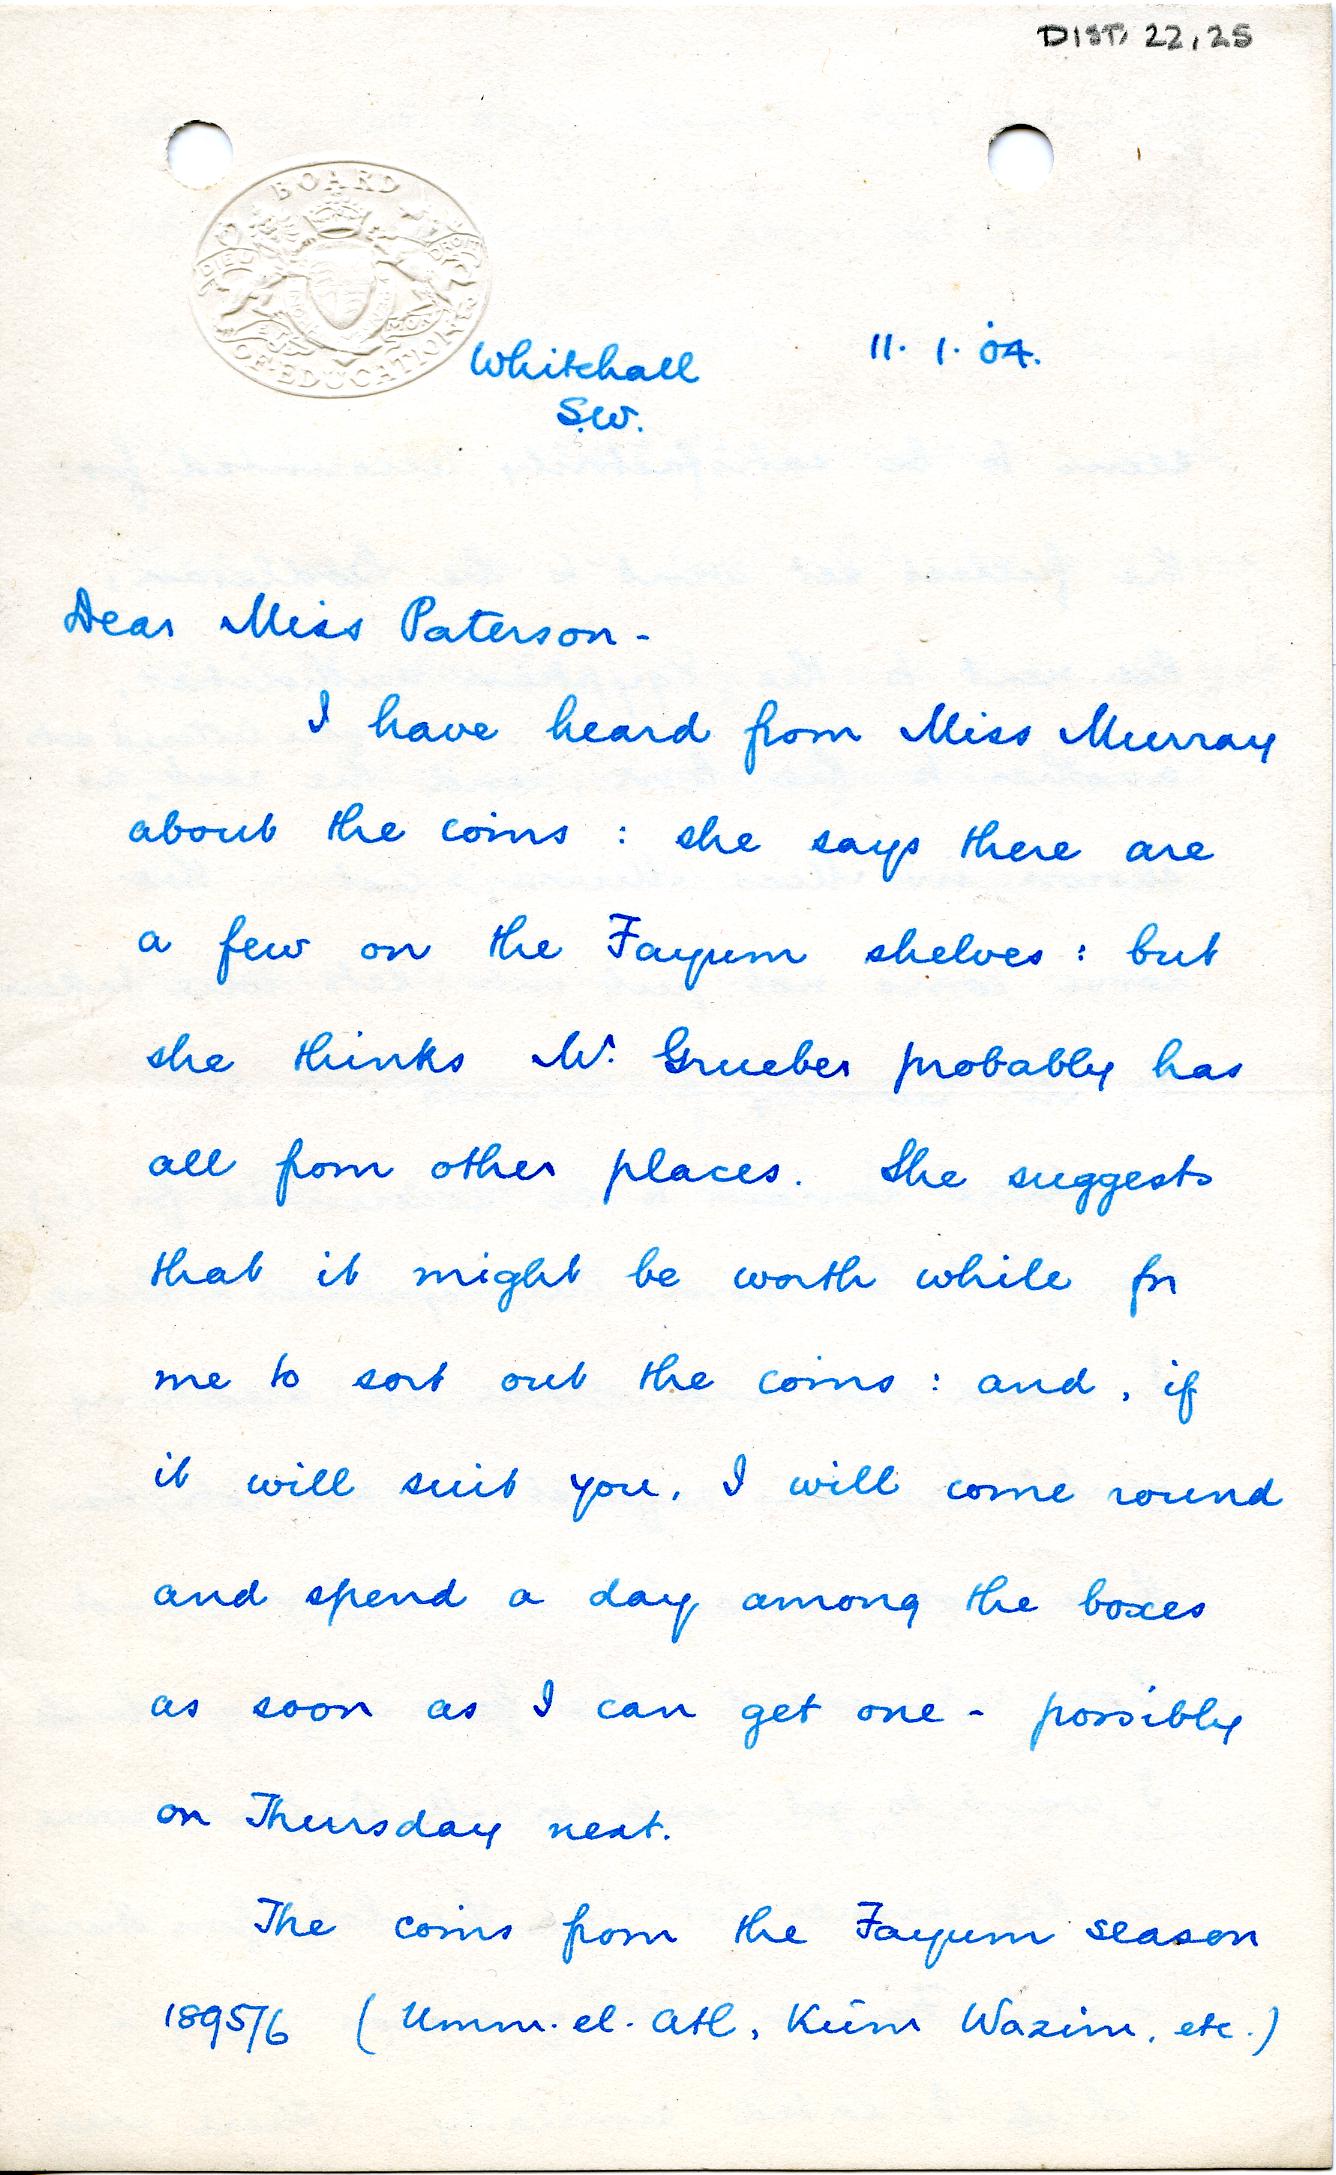 DIST. 22.25
BOARD OF EDUCATION
DIEU ET MON DROIT
Whitehall
S.W.
11. 1. 04.
Dear Miss Paterson -
I have heard from Miss Murray
about the coins : she says there are
a few on the Fayum shelves : but
she thinks Mr. Grueber probably has
all from other places. She suggests
that it might be worth while for
me to sort out the coins : and, if
it will suit you, I will come round
and spend a day among the boxes
as soon as I can get one - possibly
on Thursday next.
The coins from the Fayum season
1895/6 (Umm. el. Atl, Kûm Wazim, etc.)